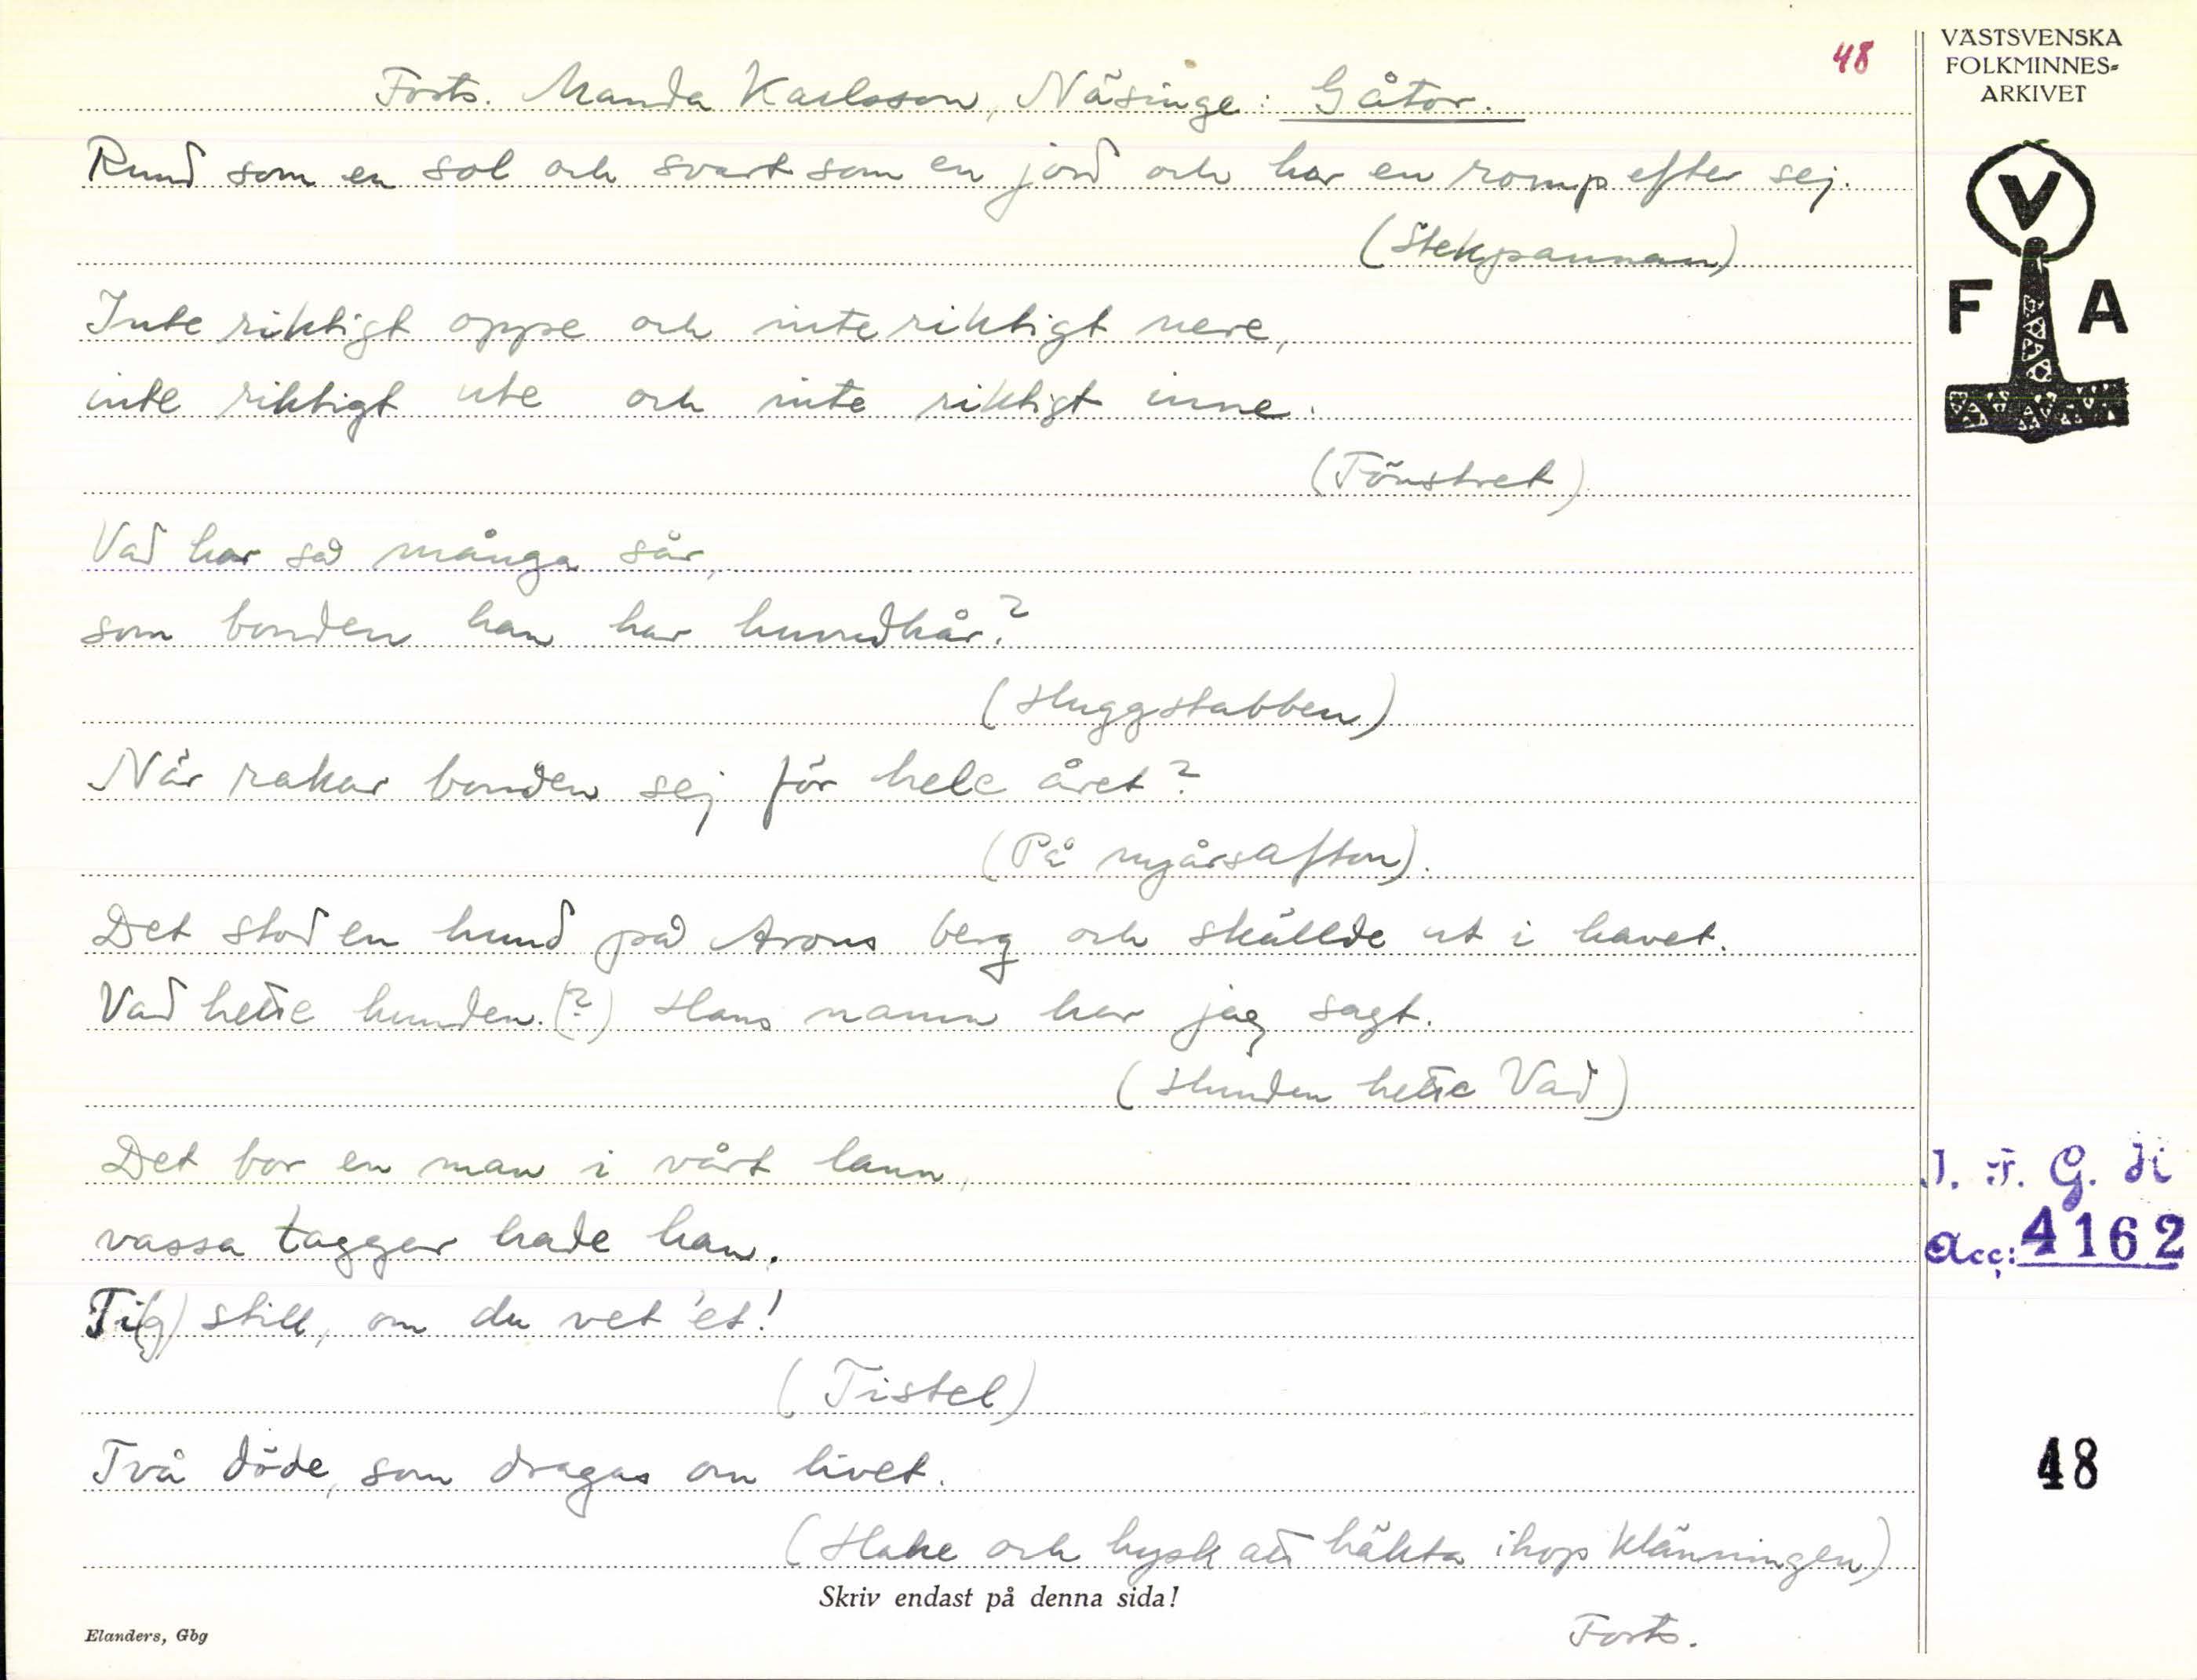 48
Forts. Manda Karlsson, Näsinge: Gåtor.
Rund som en sol och svart som en jord och har en romp efter sej.
(Stekpannan)
Inte riktigt oppe och inte riktigt nere,
inte riktigt ute och inte riktigt inne.
(Fönstret)
Vad har så många sår,
som bonden han har hundhår?
(Huggstabben)
När rakar bonden sej för hele året?
(På nyårsafton).
Det stod en hund på Arons berg och skällde ut i havet.
Vad hette hunden.(?) Hans namn har jag sagt.
(Hunden hette Vad)
Det bor en man i vårt lann,
vassa taggar hade han.
Ti(g) still, om du vet 'et!
(Tistel)
Två döde, som dragas om livet.
(Hake och hysk att häkta ihop klänningen)
Skriv endast på denna sida!
Forts.
Elanders, Gbg
VÄSTSVENSKA
FOLKMINNES-
ARKIVET
V
F A
I. F. G. H
Acc: 4162
48